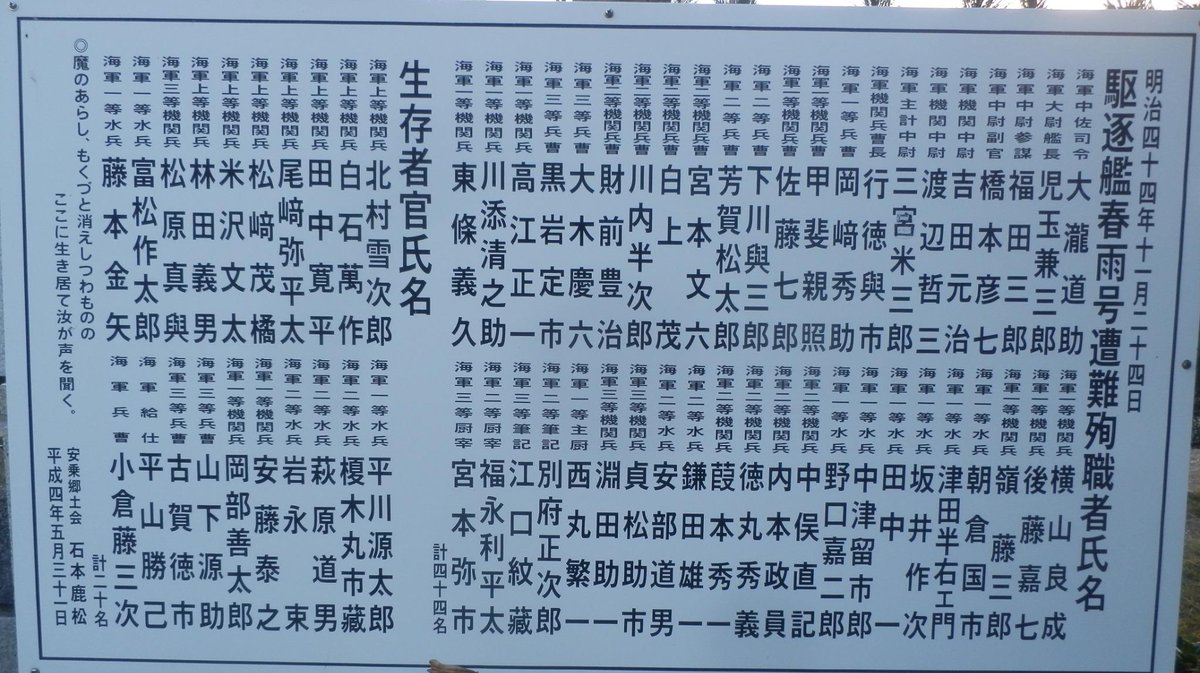 明治四十四年十一月二十四日
駆逐艦春雨号遭難殉職者氏名
海軍中佐司令 大瀧道助
海軍大尉艦長 児玉兼三郎
海軍中尉参謀 福田三郎
海軍中尉副官 橋本彦七
海軍機関中尉 吉田元治
海軍機関中尉 渡辺哲三
海軍主計中尉 三宮米三郎
海軍機関兵曹長 行徳與市
海軍一等兵曹 岡﨑秀助
海軍一等機関兵曹 甲斐親照
海軍二等機関兵曹 佐藤七郎
海軍二等兵曹 下川與三郎
海軍二等兵曹 芳賀松太郎
海軍二等機関兵曹 宮本文六
海軍二等機関兵曹 白上茂
海軍二等機関兵曹 川内半次郎
海軍二等機関兵曹 財前豊治
海軍三等兵曹 大木慶六
海軍三等兵曹 黒岩定市
海軍一等水兵 高江正一
海軍上等機関兵 川添清之助
海軍一等機関兵 東條義久
海軍一等機関兵 横山良成
海軍一等機関兵 後藤嘉七
海軍一等機関兵 嶺藤三郎
海軍一等水兵 朝倉国市
海軍一等水兵 津田半右エ門
海軍一等水兵 坂井作次
海軍一等水兵 田中一
海軍一等水兵 中津留市郎
海軍一等水兵 野口嘉二郎
海軍二等水兵 中俣直記
海軍二等水兵 内本政員
海軍二等機関兵 徳丸秀義
海軍二等機関兵 葭本秀一
海軍二等水兵 鎌田雄一
海軍二等水兵 安部道男
海軍三等機関兵 貞松助市
海軍三等機関兵 淵田助一
海軍一等主厨 西丸繁一
海軍二等筆記 別府正次郎
海軍三等筆記 江口紋藏
海軍二等厨宰 福永利平太
海軍三等厨宰 宮本弥市
計四十四名
生存者官氏名
海軍上等機関兵 北村雪次郎
海軍上等機関兵 白石萬作
海軍上等機関兵 田中寛平
海軍上等機関兵 尾﨑弥平太
海軍上等機関兵 松﨑茂橘
海軍上等機関兵 米沢文太
海軍上等機関兵 林田義男
海軍三等機関兵 松原真與
海軍一等水兵 富松作太郎
海軍一等水兵 藤本金矢
海軍一等水兵 平川源太郎
海軍二等水兵 榎木丸市藏
海軍二等水兵 萩原道男
海軍二等水兵 岩永束
海軍二等機関兵 安藤泰之
海軍一等機関兵 岡部善太郎
海軍三等兵曹 山下源助
海軍三等兵曹 古賀徳市
海軍給仕 平山勝己
海軍兵曹 小倉藤三次
計二十名
◎魔のあらし、もくづと消えしつわものの
ここに生き居て汝が声を聞く。
安乗郷土会 石本鹿松
平成四年五月三十一日